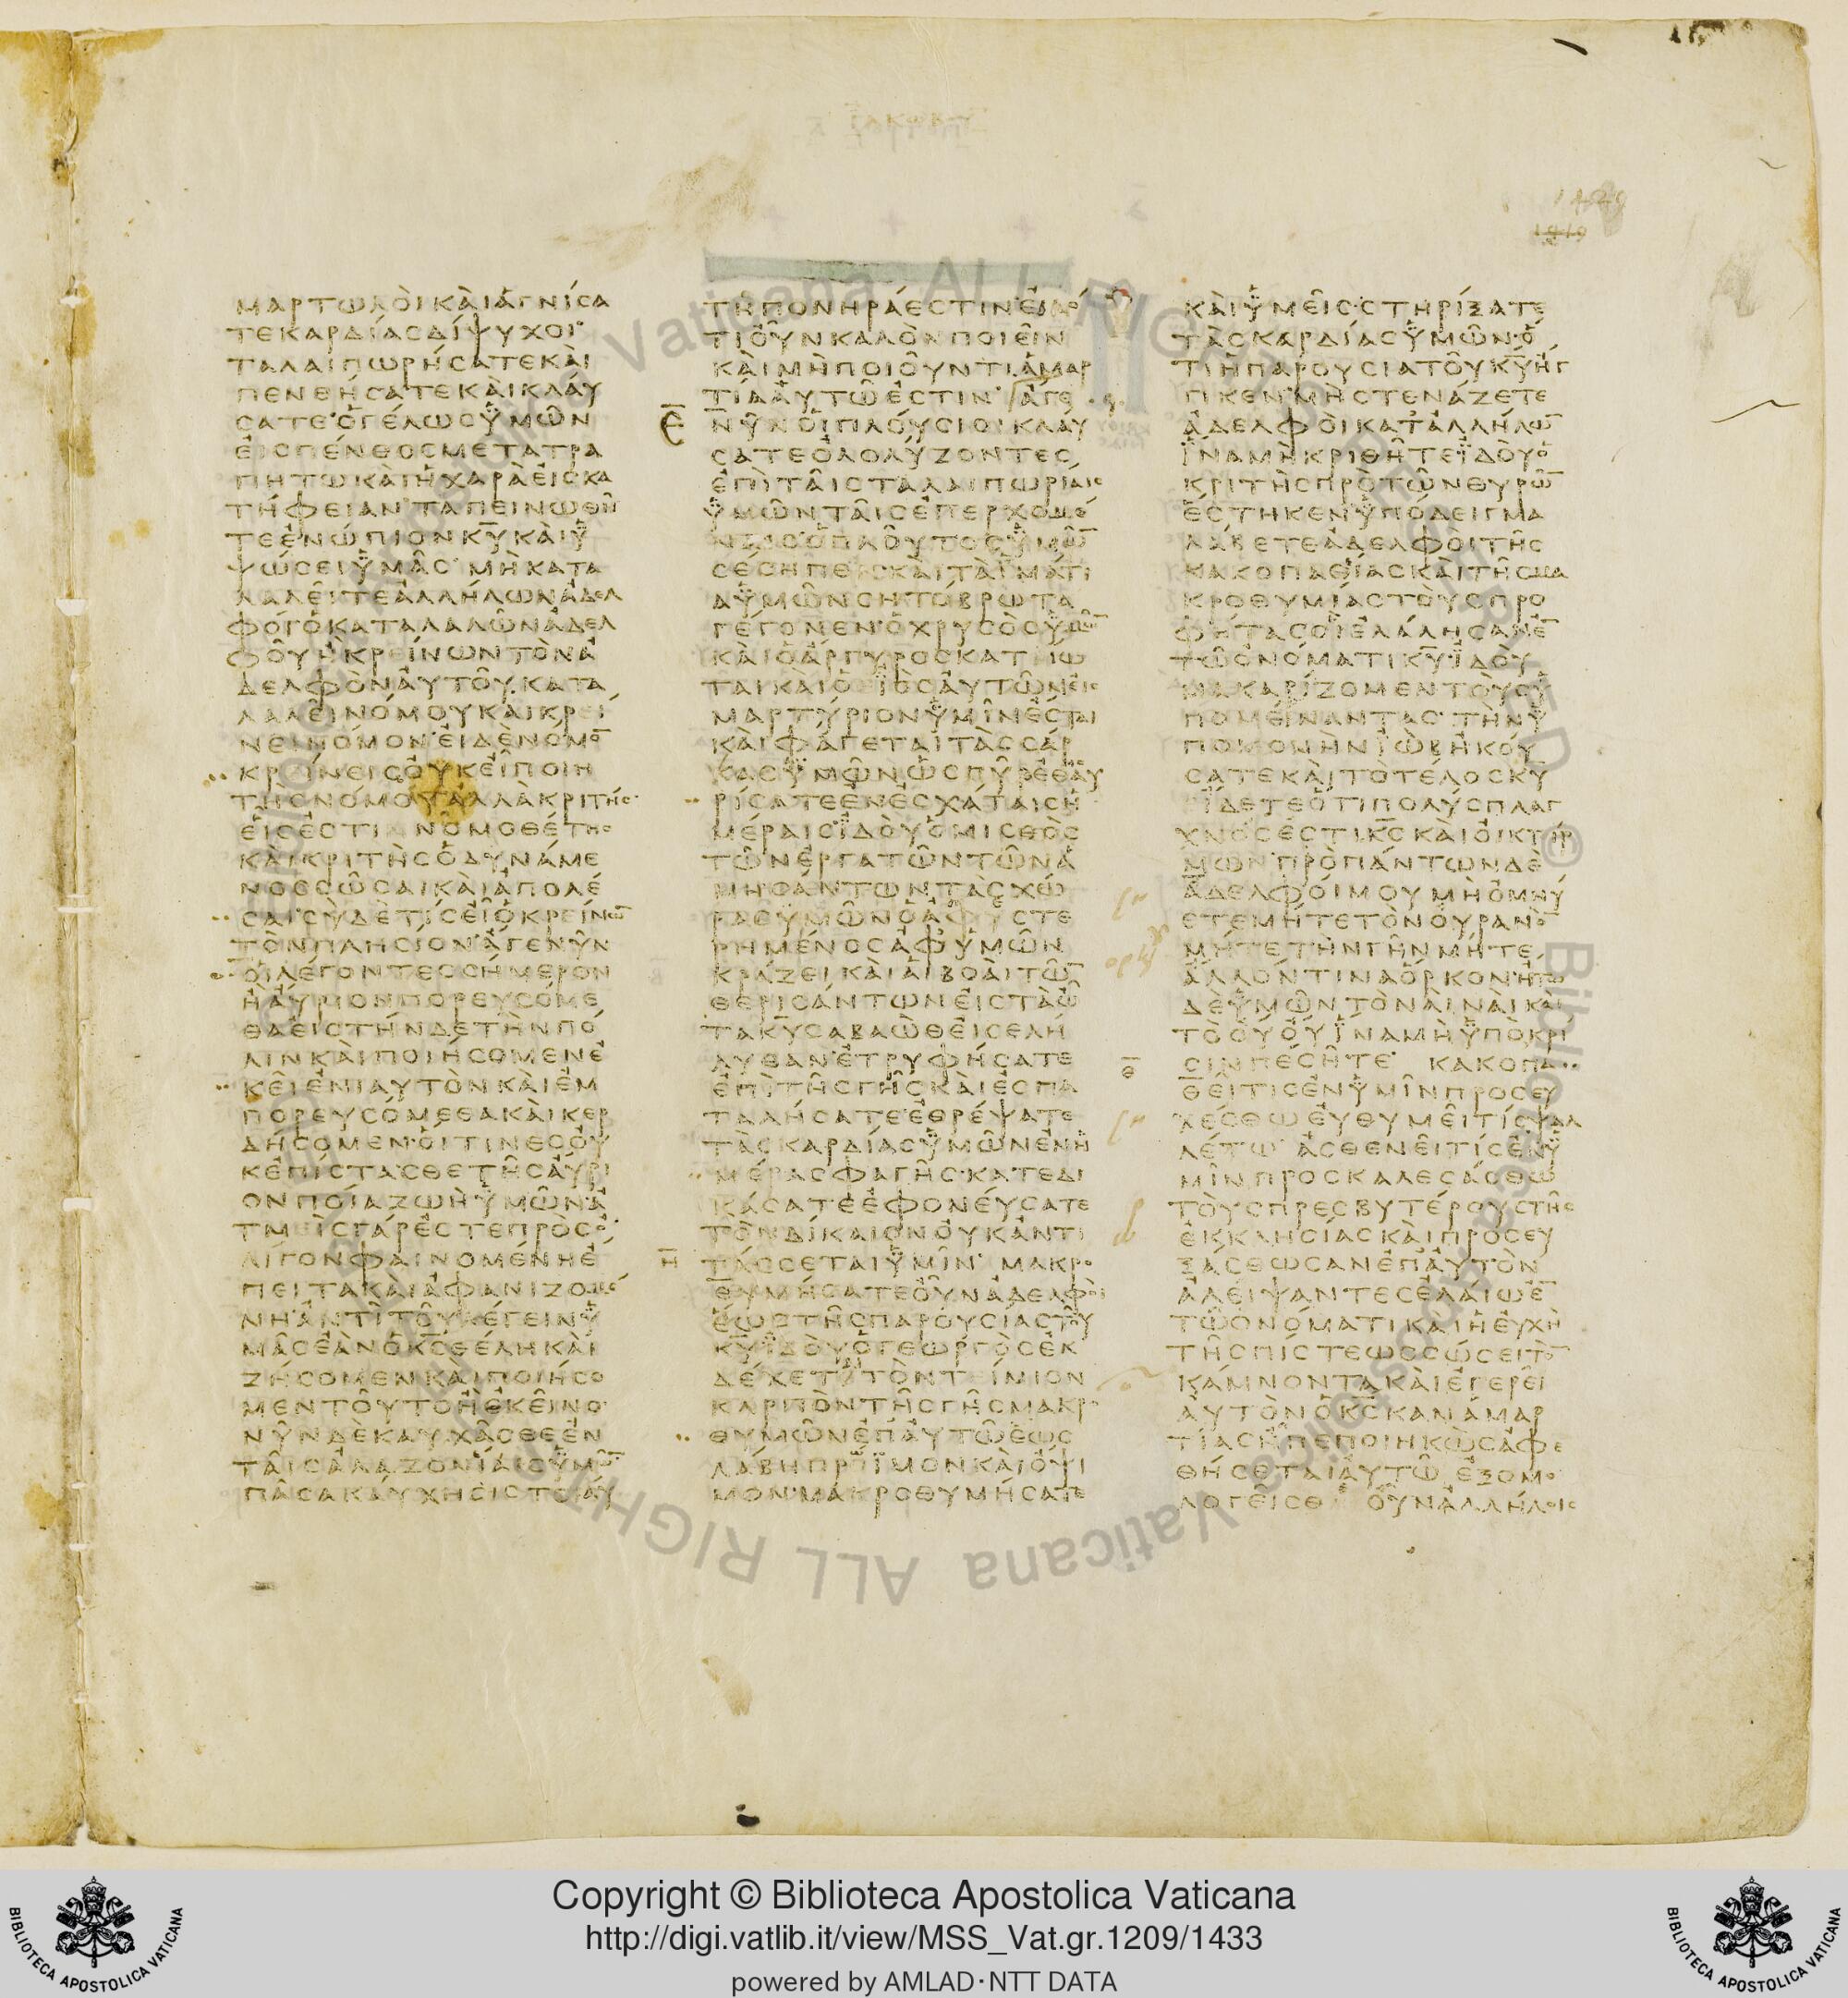 ΙΑΚΩΒΟΥ
ΜΑΡΤΩΛΟΙΚΑΙΑΓΝΙΣΑ
ΤΕΚΑΡΔΙΑΣΔΙΨΥΧΟΙ
ΤΑΛΑΙΠΩΡΗΣΑΤΕΚΑΙ
ΠΕΝΘΗΣΑΤΕΚΑΙΚΛΑΥ
ΣΑΤΕΟΓΕΛΩΣΥΜΩΝ
ΕΙΣΠΕΝΘΟΣΜΕΤΑΤΡΑ
ΠΗΤΩΚΑΙΗΧΑΡΑΕΙΣΚΑ
ΤΗΦΕΙΑΝΤΑΠΕΙΝΩΘΗ
ΤΕΕΝΩΠΙΟΝΚΥΚΑΙΥ
ΨΩΣΕΙΥΜΑΣΜΗΚΑΤΑ
ΛΑΛΕΙΤΕΑΛΛΗΛΩΝΑΔΕΛ
ΦΟΙΟΚΑΤΑΛΑΛΩΝΑΔΕΛ
ΦΟΥΗΚΡΕΙΝΩΝΤΟΝΑ
ΔΕΛΦΟΝΑΥΤΟΥΚΑΤΑ
ΛΑΛΕΙΝΟΜΟΥΚΑΙΚΡΕΙ
ΝΕΙΝΟΜΟΝΕΙΔΕΝΟΜΟ̅
ΚΡΕΙΝΕΙΣΟΥΚΕΙΠΟΙΗ
ΤΗΣΝΟΜΟΥΑΛΛΑΚΡΙΤΗΣ
ΕΙΣΕΣΤΙΝΝΟΜΟΘΕΤΗΣ
ΚΑΙΚΡΙΤΗΣΟΔΥΝΑΜΕ
ΝΟΣΣΩΣΑΙΚΑΙΑΠΟΛΕ
ΣΑΙΣΥΔΕΤΙΣΕΙΟΚΡΕΙΝΩ̅
ΤΟΝΠΛΗΣΙΟΝΑΓΕΝΥΝ
ΟΙΛΕΓΟΝΤΕΣΣΗΜΕΡΟΝ
ΗΑΥΡΙΟΝΠΟΡΕΥΣΟΜΕ
ΘΑΕΙΣΤΗΝΔΕΤΗΝΠΟ
ΛΙΝΚΑΙΠΟΙΗΣΟΜΕΝΕ
ΚΕΙΕΝΙΑΥΤΟΝΚΑΙΕΜ
ΠΟΡΕΥΣΟΜΕΘΑΚΑΙΚΕΡ
ΔΗΣΟΜΕΝΟΙΤΙΝΕΣΟΥ
ΚΕΠΙΣΤΑΣΘΕΤΗΣΑΥΡΙ
ΟΝΠΟΙΑΖΩΗΥΜΩΝΑ
ΤΜΕΙΣΓΑΡΕΣΤΕΠΡΟΣΟ
ΛΙΓΟΝΦΑΙΝΟΜΕΝΗΕ
ΠΕΙΤΑΚΑΙΑΦΑΝΙΖΟΜΕ
ΝΗΑΝΤΙΤΟΥΛΕΓΕΙΝΥ
ΜΑΣΕΑΝΟΚΣΘΕΛΗΚΑΙ
ΖΗΣΟΜΕΝΚΑΙΠΟΙΗΣΟ
ΜΕΝΤΟΥΤΟΗΕΚΕΙΝΟ
ΝΥΝΔΕΚΑΥΧΑΣΘΕΕΝ
ΤΑΙΣΑΛΑΖΟΝΙΑΙΣΥΜΩ̅
ΠΑΣΑΚΑΥΧΗΣΙΣΤΟΙΑΥ
ΤΗΠΟΝΗΡΑΕΣΤΙΝΕΙΔΟ
ΤΙΟΥΝΚΑΛΟΝΠΟΙΕΙΝ
ΚΑΙΜΗΠΟΙΟΥΝΤΙΑΜΑΡ
ΤΙΑΑΥΤΩΕΣΤΙΝΑΓΕ
Ε ΝΥΝΟΙΠΛΟΥΣΙΟΙΚΛΑΥ
ΣΑΤΕΟΛΟΛΥΖΟΝΤΕΣ
ΕΠΙΤΑΙΣΤΑΛΑΙΠΩΡΙΑΙΣ
ΥΜΩΝΤΑΙΣΕΠΕΡΧΟΜΕ
ΝΑΙΣΟΠΛΟΥΤΟΣΥΜΩ̅
ΣΕΣΗΠΕΚΑΙΤΑΙΜΑΤΙ
ΑΥΜΩΝΣΗΤΟΒΡΩΤΑ
ΓΕΓΟΝΕΝΟΧΡΥΣΟΣΥΜΩ̅
ΚΑΙΟΑΡΓΥΡΟΣΚΑΤΙΩ
ΤΑΙΚΑΙΟΕΙΟΣΑΥΤΩΝΕΙΣ
ΜΑΡΤΥΡΙΟΝΥΜΙΝΕΣΤΑΙ
ΚΑΙΦΑΓΕΤΑΙΤΑΣΣΑΡ
ΚΑΣΥΜΩΝΩΣΠΥΡΕΘΗΣΑΥ
ΡΙΣΑΤΕΕΝΕΣΧΑΤΑΙΣΗ
ΜΕΡΑΙΣΙΔΟΥΟΜΙΣΘΟΣ
ΤΩΝΕΡΓΑΤΩΝΤΩΝΑ
ΜΗΣΑΝΤΩΝΤΑΣΧΩ
ΡΑΣΥΜΩΝΟΑΦΥΣΤΕ
ΡΗΜΕΝΟΣΑΦΥΜΩΝ
ΚΡΑΖΕΙΚΑΙΑΙΒΟΑΙΤΩ̅
ΘΕΡΙΣΑΝΤΩΝΕΙΣΤΑΩ
ΤΑΚΥΣΑΒΑΩΘΕΙΣΕΛΗ
ΛΥΘΑΝΕΤΡΥΦΗΣΑΤΕ
ΕΠΙΤΗΣΓΗΣΚΑΙΕΣΠΑ
ΤΑΛΗΣΑΤΕΕΘΡΕΨΑΤΕ
ΤΑΣΚΑΡΔΙΑΣΥΜΩΝΕΝΗ
ΜΕΡΑΣΦΑΓΗΣΚΑΤΕΔΙ
ΚΑΣΑΤΕΕΦΟΝΕΥΣΑΤΕ
ΤΟΝΔΙΚΑΙΟΝΟΥΚΑΝΤΙ
Η ΤΑΣΣΕΤΑΙΥΜΙΝ ΜΑΚΡΟ
ΘΥΜΗΣΑΤΕΟΥΝΑΔΕΛΦΟΙ
ΕΩΣΤΗΣΠΑΡΟΥΣΙΑΣΤΟΥ
ΚΥΙΔΟΥΟΓΕΩΡΓΟΣΕΚ
ΔΕΧΕΤΑΙΤΟΝΤΕΙΜΙΟΝ
ΚΑΡΠΟΝΤΗΣΓΗΣΜΑΚΡΟ
ΘΥΜΩΝΕΠΑΥΤΩΕΩΣ
ΛΑΒΗΠΡΟΙΜΟΝΚΑΙΟΨΙ
ΜΟΝΜΑΚΡΟΘΥΜΗΣΑΤΕ
ΚΑΙΥΜΕΙΣΣΤΗΡΙΞΑΤΕ
ΤΑΣΚΑΡΔΙΑΣΥΜΩΝΟ
ΤΙΗΠΑΡΟΥΣΙΑΤΟΥΚΥΗΓ
ΓΙΚΕΝΜΗΣΤΕΝΑΖΕΤΕ
ΑΔΕΛΦΟΙΚΑΤΑΛΛΗΛΩ̅
ΙΝΑΜΗΚΡΙΘΗΤΕΙΔΟΥΟ
ΚΡΙΤΗΣΠΡΟΤΩΝΘΥΡΩ̅
ΕΣΤΗΚΕΝΥΠΟΔΕΙΓΜΑ
ΛΑΒΕΤΕΑΔΕΛΦΟΙΤΗΣ
ΚΑΚΟΠΑΘΙΑΣΚΑΙΤΗΣΜΑ
ΚΡΟΘΥΜΙΑΣΤΟΥΣΠΡΟ
ΦΗΤΑΣΟΙΕΛΑΛΗΣΑΝΕ̅
ΤΩΟΝΟΜΑΤΙΚΥΙΔΟΥ
ΜΑΚΑΡΙΖΟΜΕΝΤΟΥΣΥ
ΠΟΜΕΙΝΑΝΤΑΣΤΗΝΥ
ΠΟΜΟΝΗΝΙΩΒΗΚΟΥ
ΣΑΤΕΚΑΙΤΟΤΕΛΟΣΚΥ
ΕΙΔΕΤΕΟΤΙΠΟΛΥΣΠΛΑΓ
ΧΝΟΣΕΣΤΙΚΣΚΑΙΟΙΚΤΙΡ
ΜΩΝΠΡΟΠΑΝΤΩΝΔΕ
ΑΔΕΛΦΟΙΜΟΥΜΗΟΜΝΥ
ΕΤΕΜΗΤΕΤΟΝΟΥΡΑΝΟ̅
ΜΗΤΕΤΗΝΓΗΝΜΗΤΕ
ΑΛΛΟΝΤΙΝΑΟΡΚΟΝΗΤΩ
ΔΕΥΜΩΝΤΟΝΑΙΝΑΙΚΑΙ
ΤΟΟΥΟΥΙΝΑΜΗΥΠΟΚΡΙ
Θ ΣΙΝΠΕΣΗΤΕ ΚΑΚΟΠΑ
ΘΕΙΤΙΣΕΝΥΜΙΝΠΡΟΣΕΥ
ΧΕΣΘΩΕΥΘΥΜΕΙΤΙΣΨΑΛ
ΛΕΤΩΑΣΘΕΝΕΙΤΙΣΕΝΥ
ΜΙΝΠΡΟΣΚΑΛΕΣΑΣΘΩ
ΤΟΥΣΠΡΕΣΒΥΤΕΡΟΥΣΤΗΣ
ΕΚΚΛΗΣΙΑΣΚΑΙΠΡΟΣΕΥ
ΞΑΣΘΩΣΑΝΕΠΑΥΤΟΝ
ΑΛΕΙΨΑΝΤΕΣΕΛΑΙΩΕ̅
ΤΩΟΝΟΜΑΤΙΚΑΙΗΕΥΧΗ
ΤΗΣΠΙΣΤΕΩΣΣΩΣΕΙΤΟ̅
ΚΑΜΝΟΝΤΑΚΑΙΕΓΕΡΕΙ
ΑΥΤΟΝΟΚΣΚΑΝΑΜΑΡ
ΤΙΑΣΗΠΕΠΟΙΗΚΩΣΑΦΕ
ΘΗΣΕΤΑΙΑΥΤΩΕΞΟΜΟ
ΛΟΓΕΙΣΘΕΟΥΝΑΛΛΗΛΟΙΣ
Copyright © Biblioteca Apostolica Vaticana
http://digi.vatlib.it/view/MSS_Vat.gr.1209/1433
powered by AMLAD·NTT DATA
BIBLIOTECA APOSTOLICA VATICANA
BIBLIOTECA APOSTOLICA VATICANA